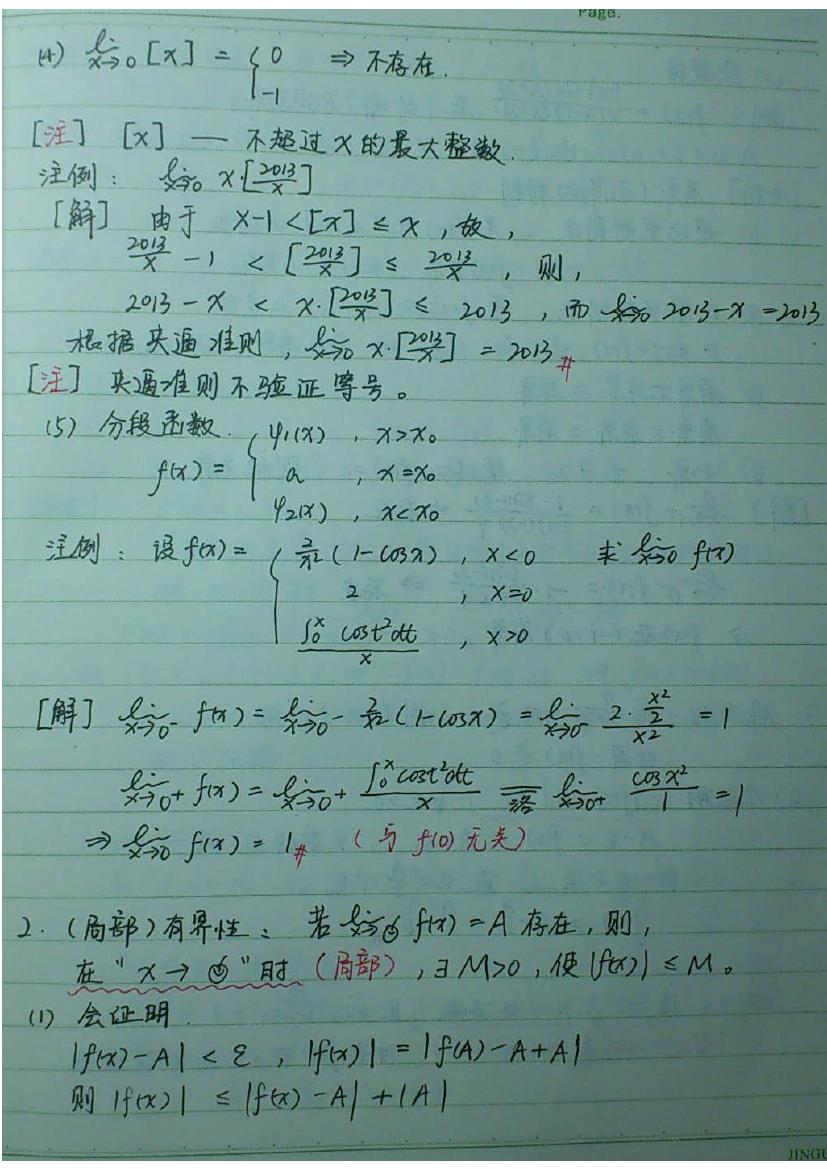 Page.
(4) lim x→0 [x] = { 0 ⇒ 不存在.
-1
[注] [x] — 不超过x的最大整数.
注例: lim x→0 x·[2013/x]
[解] 由于 x-1 < [x] ≤ x, 故,
2013/x - 1 < [2013/x] ≤ 2013/x, 则,
2013 - x < x·[2013/x] ≤ 2013, 而 lim x→0 2013-x = 2013
根据夹逼准则, lim x→0 x·[2013/x] = 2013 #
[注] 夹逼准则不验证等号。
(5) 分段函数.
f(x) = { φ1(x), x>x₀
a, x=x₀
φ2(x), x<x₀
注例: 设f(x) = { 2/x² (1-cosx), x<0 求 lim x→0 f(x)
2, x=0
∫₀ˣ cost²dt / x, x>0
[解] lim x→0⁻ f(x) = lim x→0⁻ 2/x² (1-cosx) = lim x→0⁻ 2·(x²/2) / x² = 1
lim x→0⁺ f(x) = lim x→0⁺ ∫₀ˣ cost²dt / x =洛= lim x→0⁺ cosx²/1 = 1
⇒ lim x→0 f(x) = 1 # (与 f(0) 无关)
2. (局部) 有界性: 若 lim x→ f(x) = A 存在, 则,
在 "x → " 时 (局部), ∃ M>0, 使 |f(x)| ≤ M。
(1) 会证明.
|f(x)-A| < ε, |f(x)| = |f(A)-A+A|
则 |f(x)| ≤ |f(x)-A| + |A|
JINGU